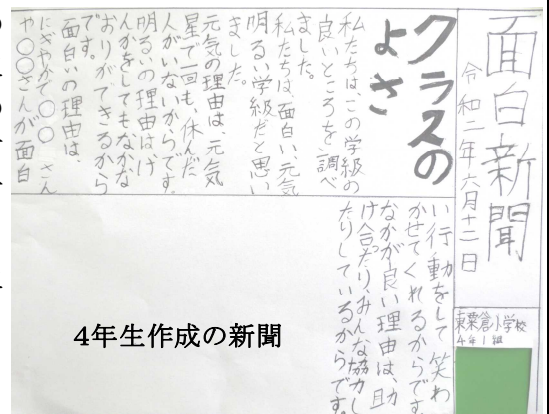 面白新聞
令和二年六月十二日
東粟倉小学校
4年1組
クラスの
よさ
私たちは、この学級の
良いところを調べ
ました。
私たちは面白い、元気
明るい学級だと思い
ました。
元気の理由は、元気
星で一回も、休んだ
人がいないからです。
明るいの理由はけ
んかをしてもなかな
おりができるから
です。
面白いの理由は、
にぎやかで〇〇さん
や〇〇さんが面白
い行動をして笑わ
かせてくれるからです
なかが良い理由は、助
け合たり、みんな協力し
たりしているからです。
4年生作成の新聞